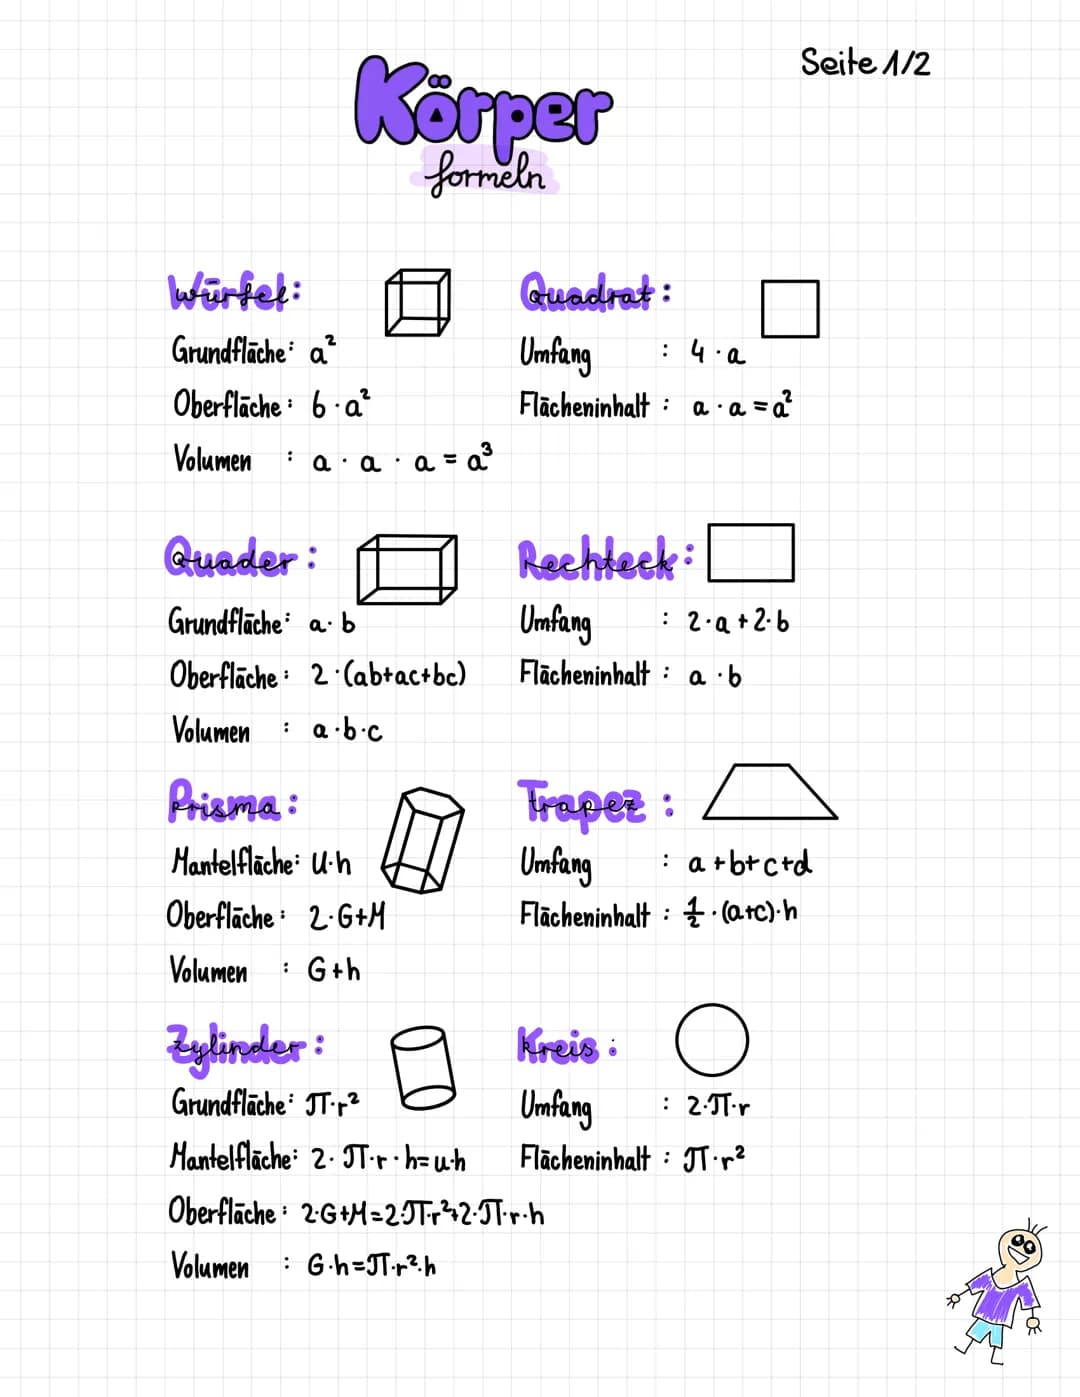 Seite 1/2
Körper
formeln
Würfel:
Grundfläche: a²
Oberfläche: 6·a²
Volumen : a · a · a = a³
Quadrat:
Umfang : 4·a
Flächeninhalt : a·a=a²
Quader:
Grundfläche: a·b
Oberfläche: 2·(ab+ac+bc)
Volumen : a·b·c
Rechteck:
Umfang : 2·a+2·b
Flächeninhalt : a·b
Prisma:
Mantelfläche: U·h
Oberfläche: 2·G+M
Volumen : G+h
Trapez :
Umfang : a+b+c+d
Flächeninhalt : 1/2·(a+c)·h
Zylinder:
Grundfläche: π·r²
Mantelfläche: 2·π·r·h=u·h
Oberfläche: 2·G+M=2·π·r²+2·π·r·h
Volumen : G·h=π·r²·h
Kreis:
Umfang : 2·π·r
Flächeninhalt : π·r²